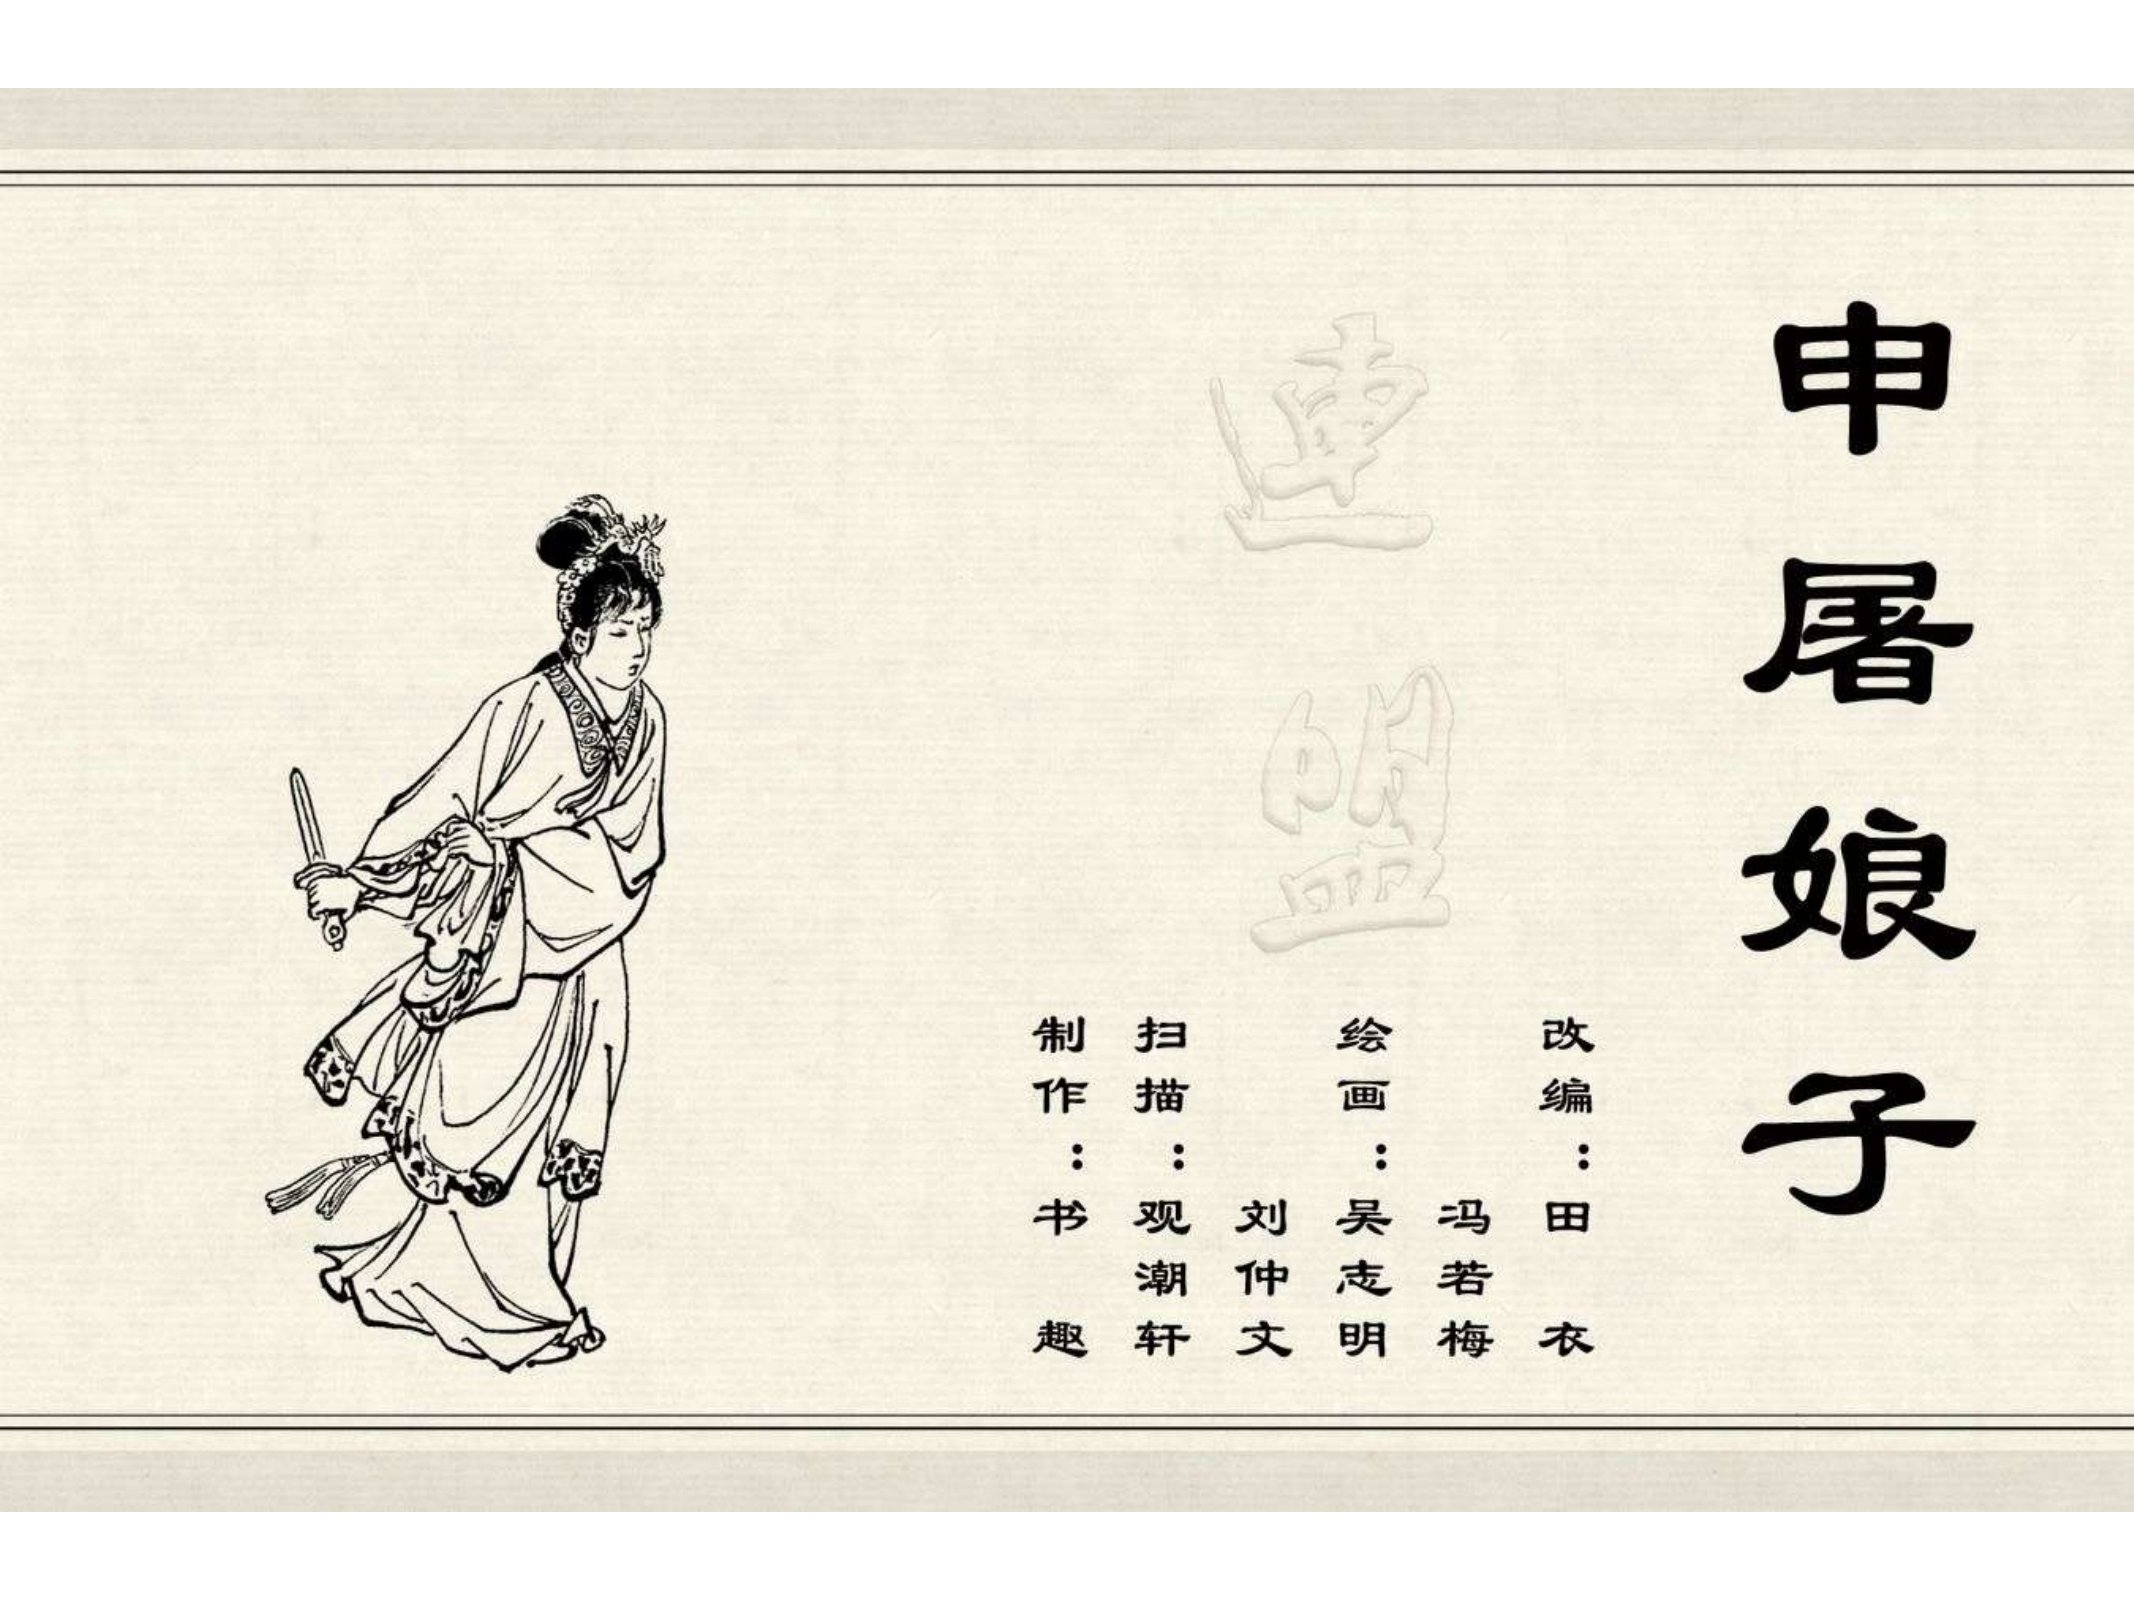 申屠娘子
改编：田衣
冯若梅
绘画：吴志明
刘仲文
扫描：观潮轩
制作：书趣
連盟